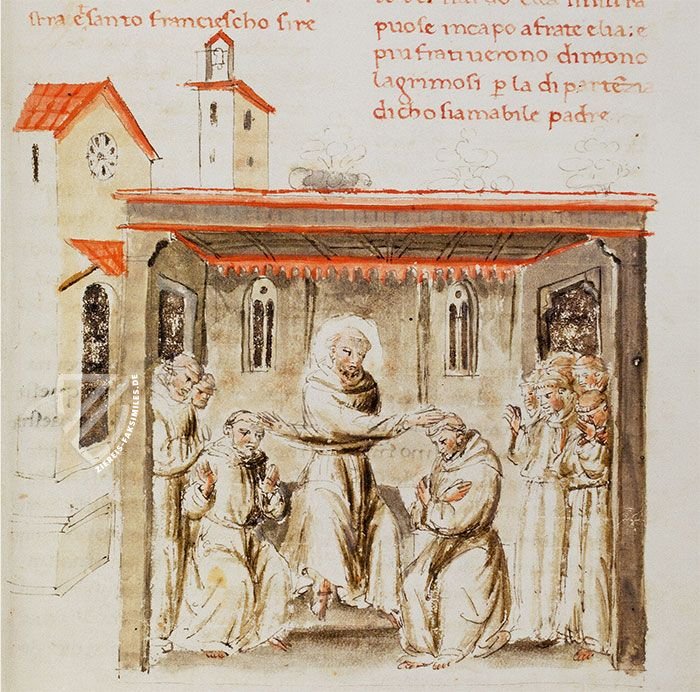 stra e santo franciescho sire
puose in capo a frate elia: e
piu frati verono dintono
lagrimosi p la di partēzia
di cho si amabile padre
ZIEREIS-FAKSIMILES.DE